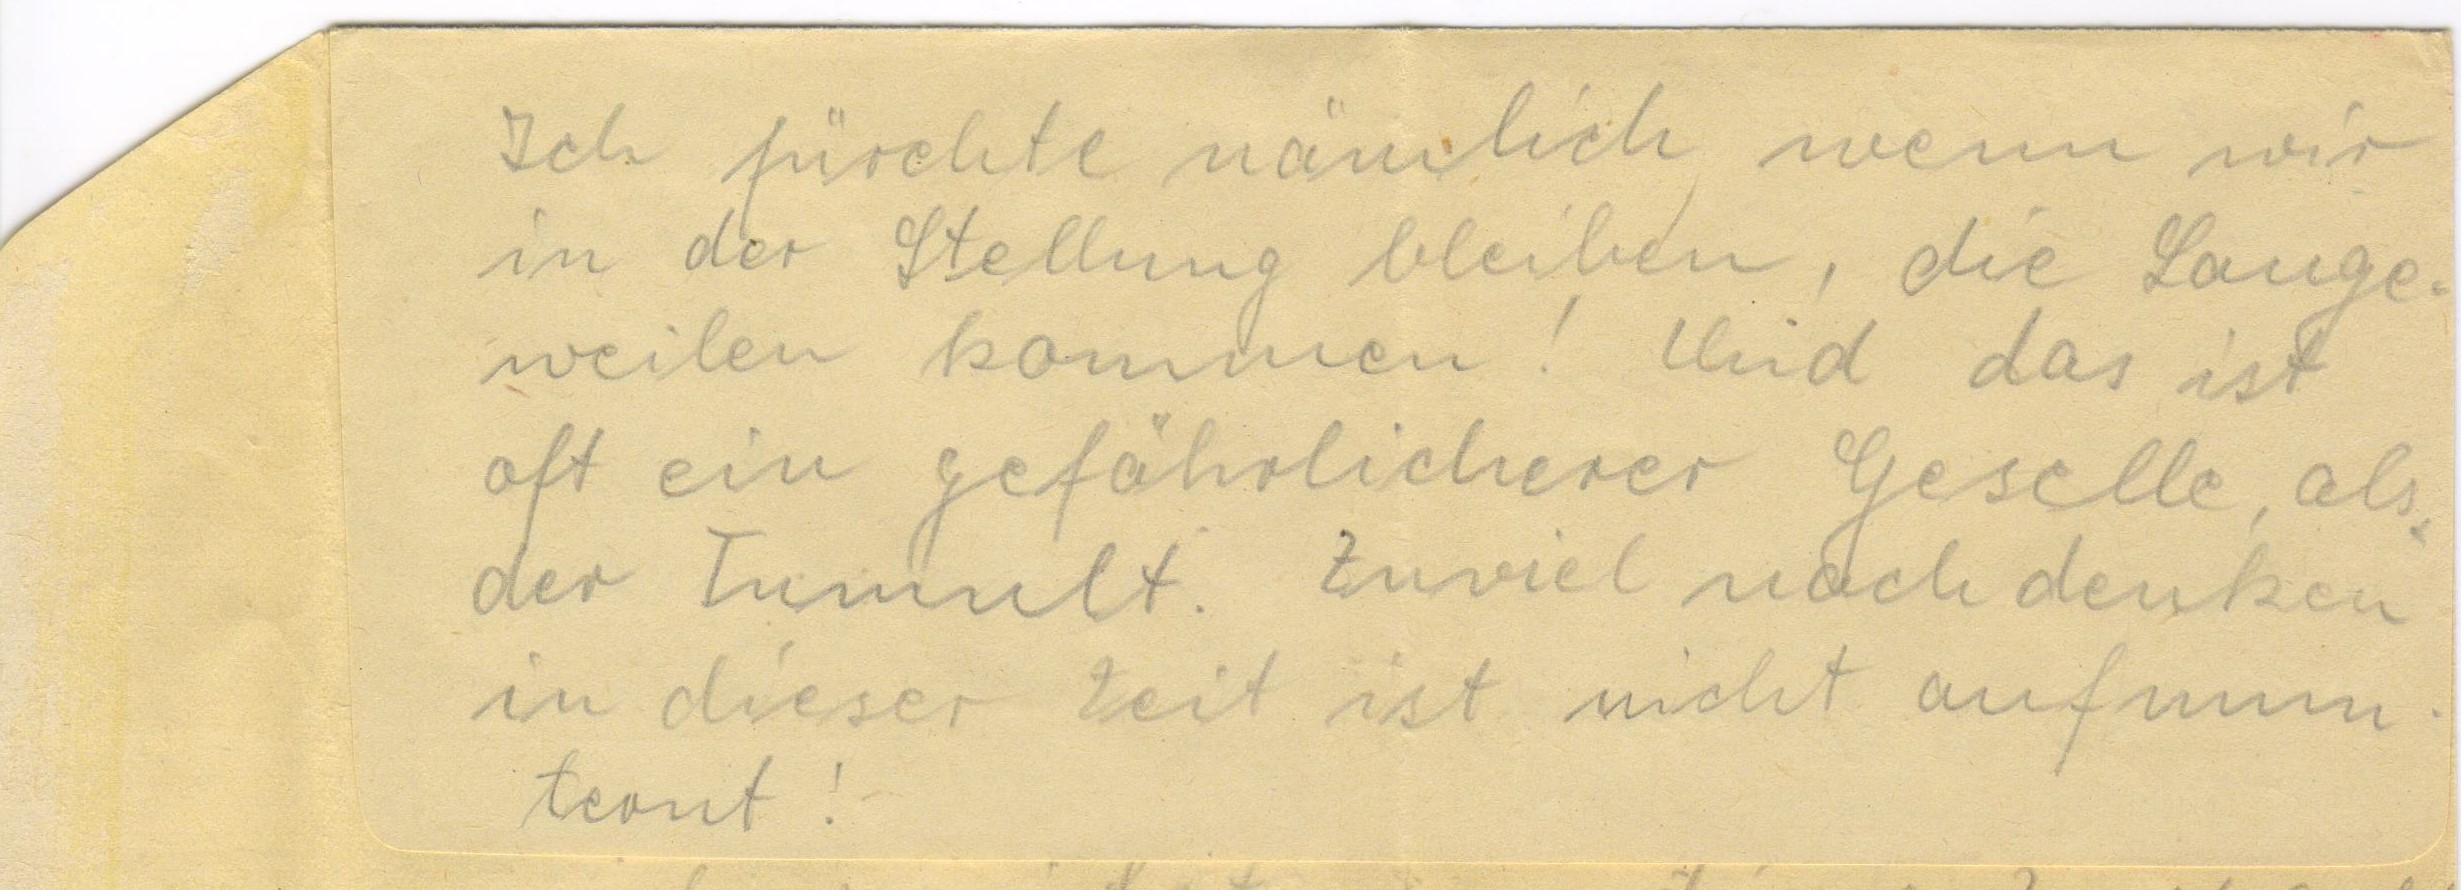 Ich fürchte nämlich, wenn wir
in der Stellung bleiben, die Lange-
weilen kommen! Und das ist
oft ein gefährlicherer Geselle, als
der Tumult. Zuviel nachdenken
in dieser Zeit ist nicht aufmun-
ternt!